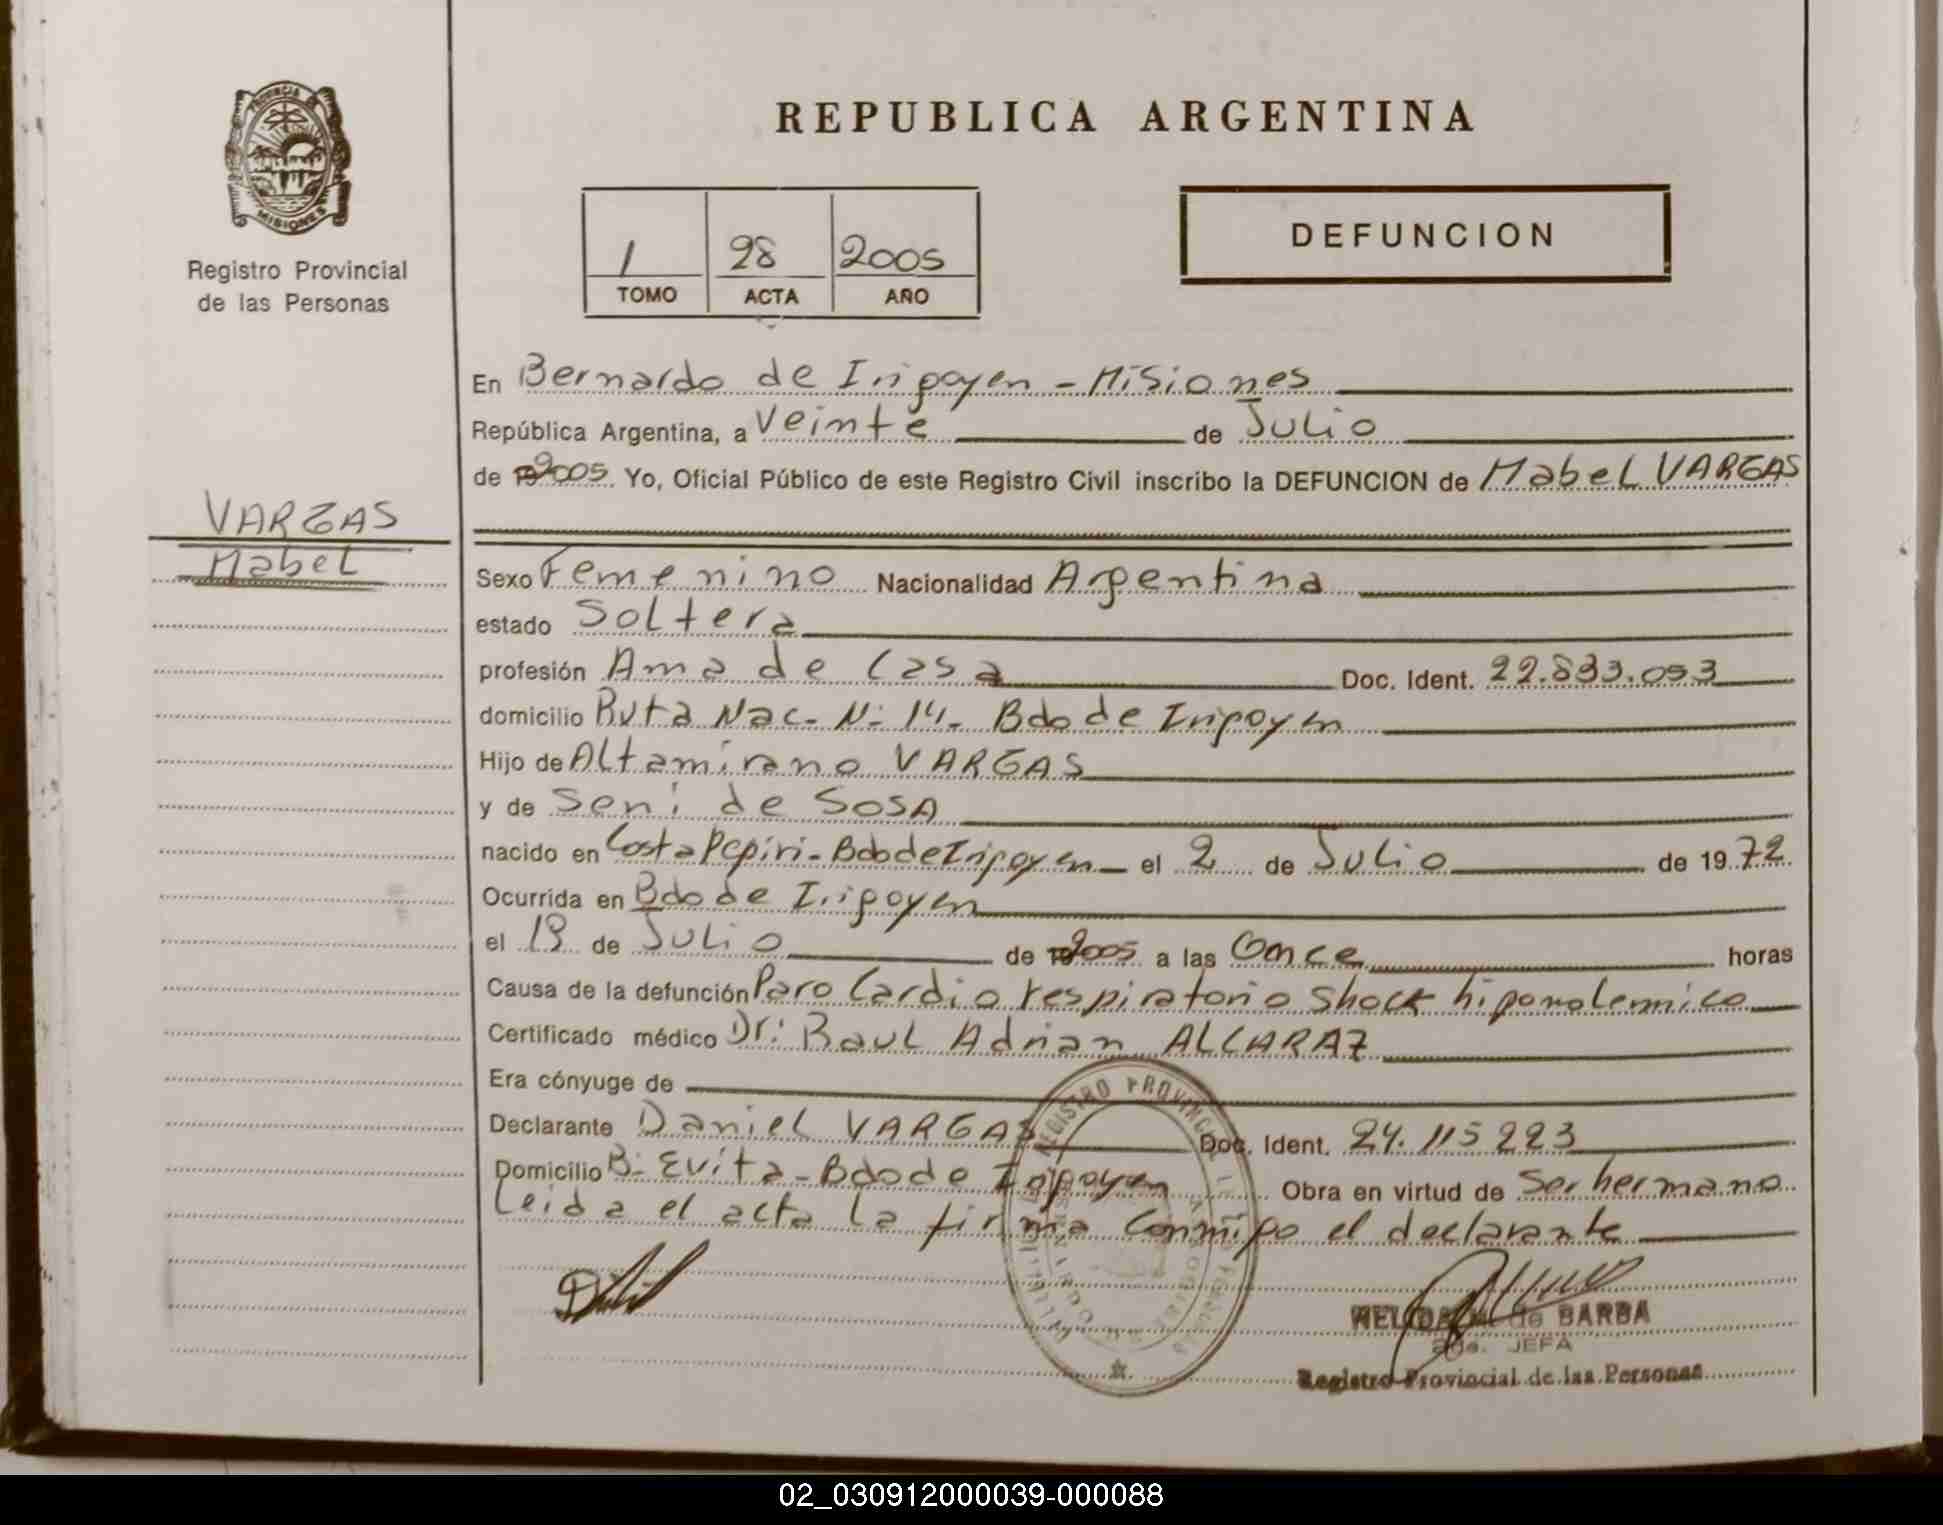 REPUBLICA ARGENTINA
PROVINCIA DE
MISIONES
Registro Provincial
de las Personas
1 28 2005
TOMO ACTA AÑO
DEFUNCION
En Bernardo de Irigoyen - Misiones
República Argentina, a Veinte de Julio
de 2005 Yo, Oficial Público de este Registro Civil inscribo la DEFUNCION de Mabel VARGAS
VARGAS
Mabel
Sexo Femenino Nacionalidad Argentina
estado Soltera
profesión Ama de Casa Doc. Ident. 22.833.053
domicilio Ruta Nac. N: 14- Bdo de Irigoyen
Hijo de Altamirano VARGAS
y de Seni de SOSA
nacido en Costa Pepiri - Bdo de Irigoyen el 2 de Julio de 1972
Ocurrida en Bdo de Irigoyen
el 19 de Julio de 2005 a las Once horas
Causa de la defunción Paro Cardio respiratorio Shock hipovolemico
Certificado médico Dr: Raul Adrian ALCARAZ
Era cónyuge de
Declarante Daniel VARGAS Doc. Ident. 24.115223
Domicilio B: Evita - Bdo de Irigoyen Obra en virtud de Ser hermano
Leida el acta la firma Conmigo el declarante
REGISTRO PROVINCIAL
de BARBA
JEFA
Registro Provincial de las Personas
02_030912000039-000088